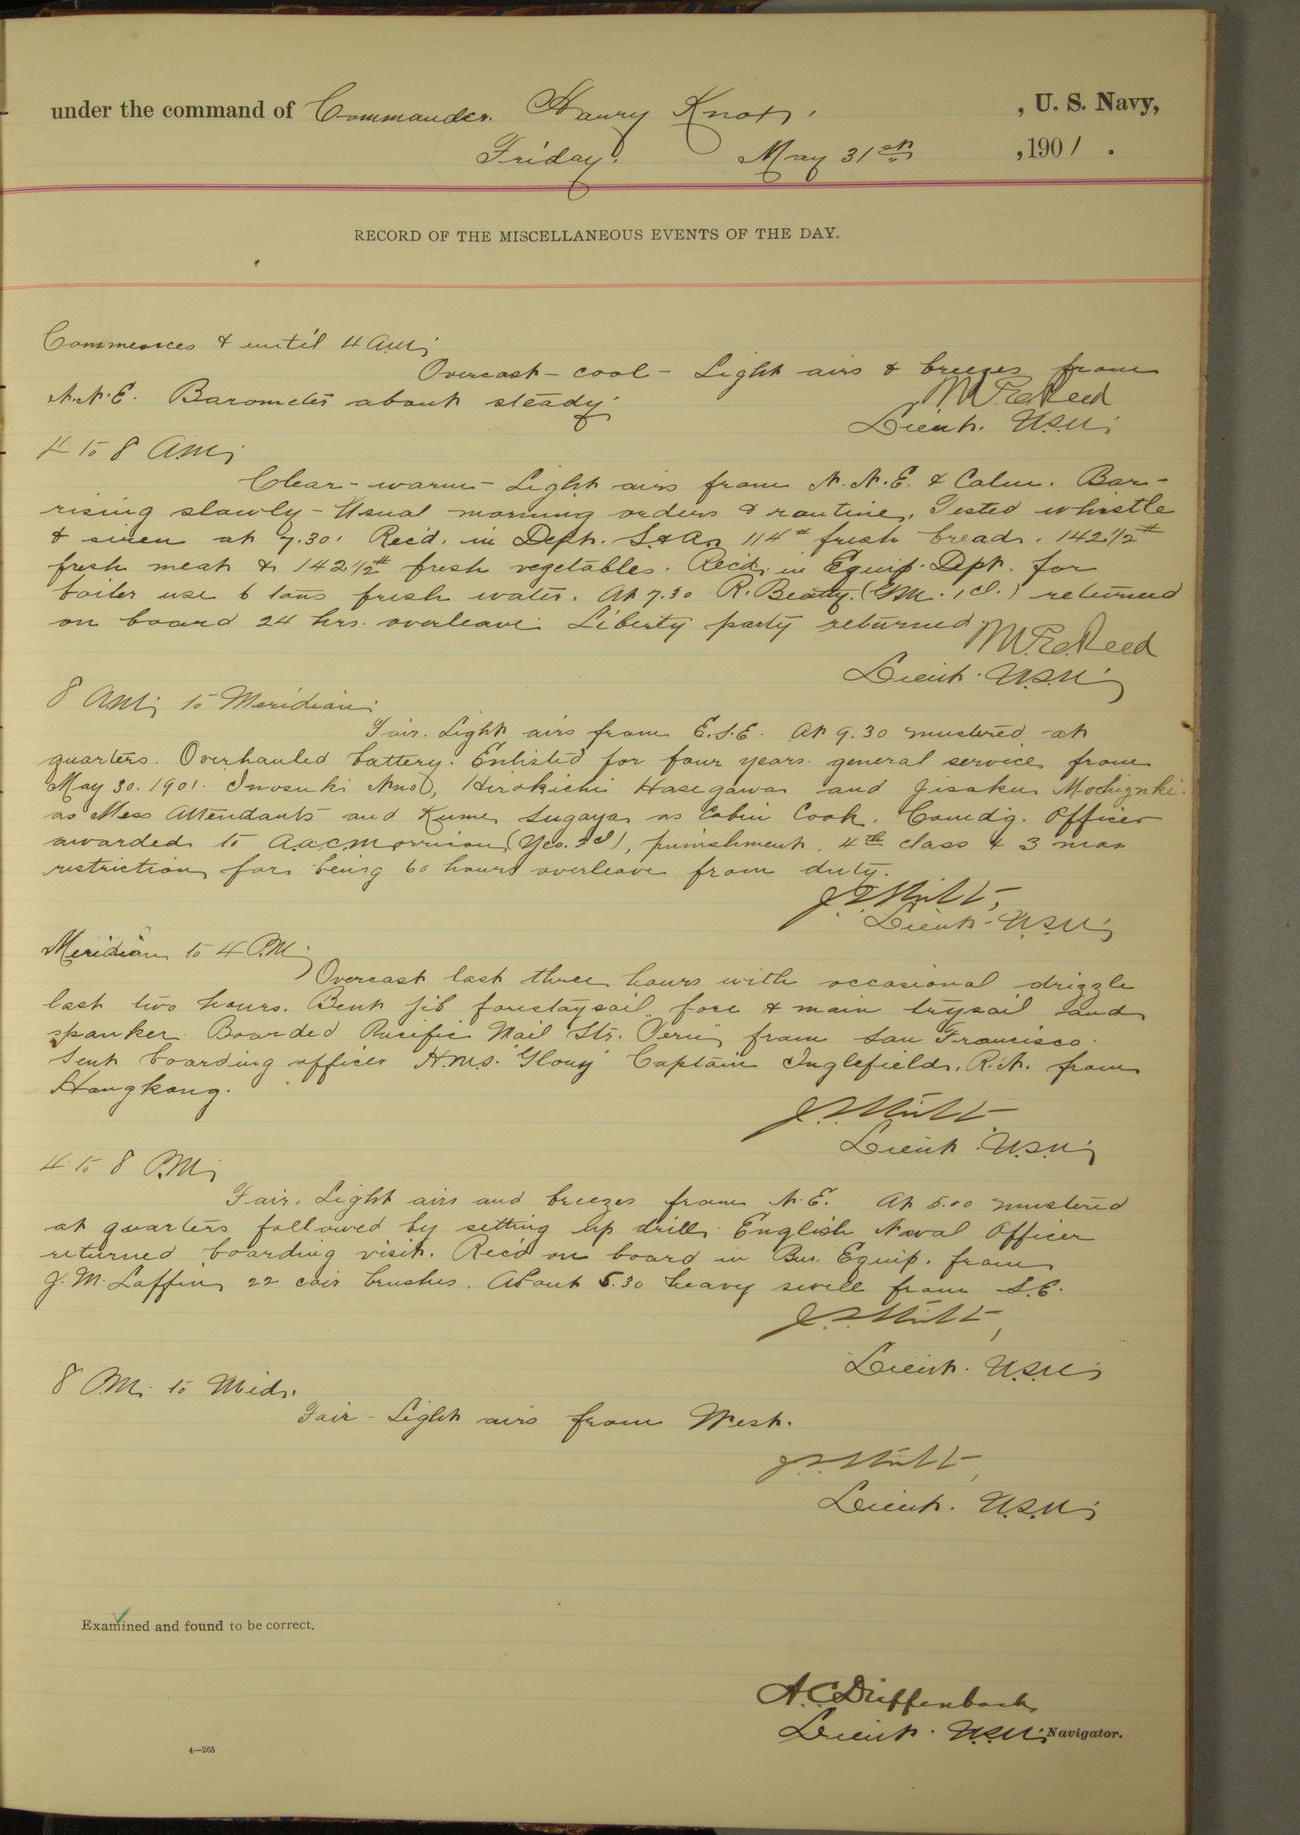 under the command of Commander Harry Knox, , U. S. Navy,
Friday. May 31st ,1901.
RECORD OF THE MISCELLANEOUS EVENTS OF THE DAY.
Commences & until 4 A.M.;
Overcast - cool - Light airs & breezes from
N.N.E. Barometer about steady.
Reed
Lieut. U.S.N.;
4 to 8 A.M.;
Clear - warm - Light airs from N.N.E. & Calm. Bar-
rising slowly - Usual morning orders & routine. Tested whistle
& siren at 7.30. Rec'd. in Dept. S. & A. 114# fresh bread. 142 1/2#
fresh meat & 142 1/2# fresh vegetables. Rec'd. in Equip. Dept. for
boiler use 6 tons fresh water. At 7.30 R. Beatty. (G.M. 1 Cl.) returned
on board 24 hrs. overleave. Liberty party returned.
Reed
Lieut. U.S.N.;
8 A.M.; to Meridian;
Fair. Light airs from E.S.E. At 9.30 mustered at
quarters. Overhauled battery. Enlisted for four years general service from
May 30. 1901. Hirokichi Hasegawa and Jisaku Mochizuki
as Mess Attendants and Kume Sugaya as Cabin Cook. Comdg. Officer
awarded to A.A.C. Morrison (Yeo. 2 Cl), punishment, 4th class & 3 mos
restriction for being 60 hours overleave from duty.
Lieut. U.S.N.;
Meridian to 4 P.M.;
Overcast last three hours with occasional drizzle
last two hours. Bent jib forestaysail, fore & main trysail and
spanker. Boarded Pacific Mail Str. "Peru" from San Francisco.
Sent boarding officer H.M.S. "Glory" Captain Inglefield, R.N. from
Hongkong.
Lieut. U.S.N.;
4 to 8 P.M.;
Fair. Light airs and breezes from N.E. At 5.00 mustered
at quarters followed by setting up drill. English Naval Officer
returned boarding visit. Rec'd on board in Bu. Equip. from
J. M. Laffin 22 coir brushes. About 5.30 heavy swell from S.E.
Lieut. U.S.N.;
8 P.M. to Mid.
Fair - Light airs from West.
Lieut. U.S.N.;
Examined and found to be correct.
A. C. Dieffenbach
Lieut. U.S.N.; Navigator.
4—265